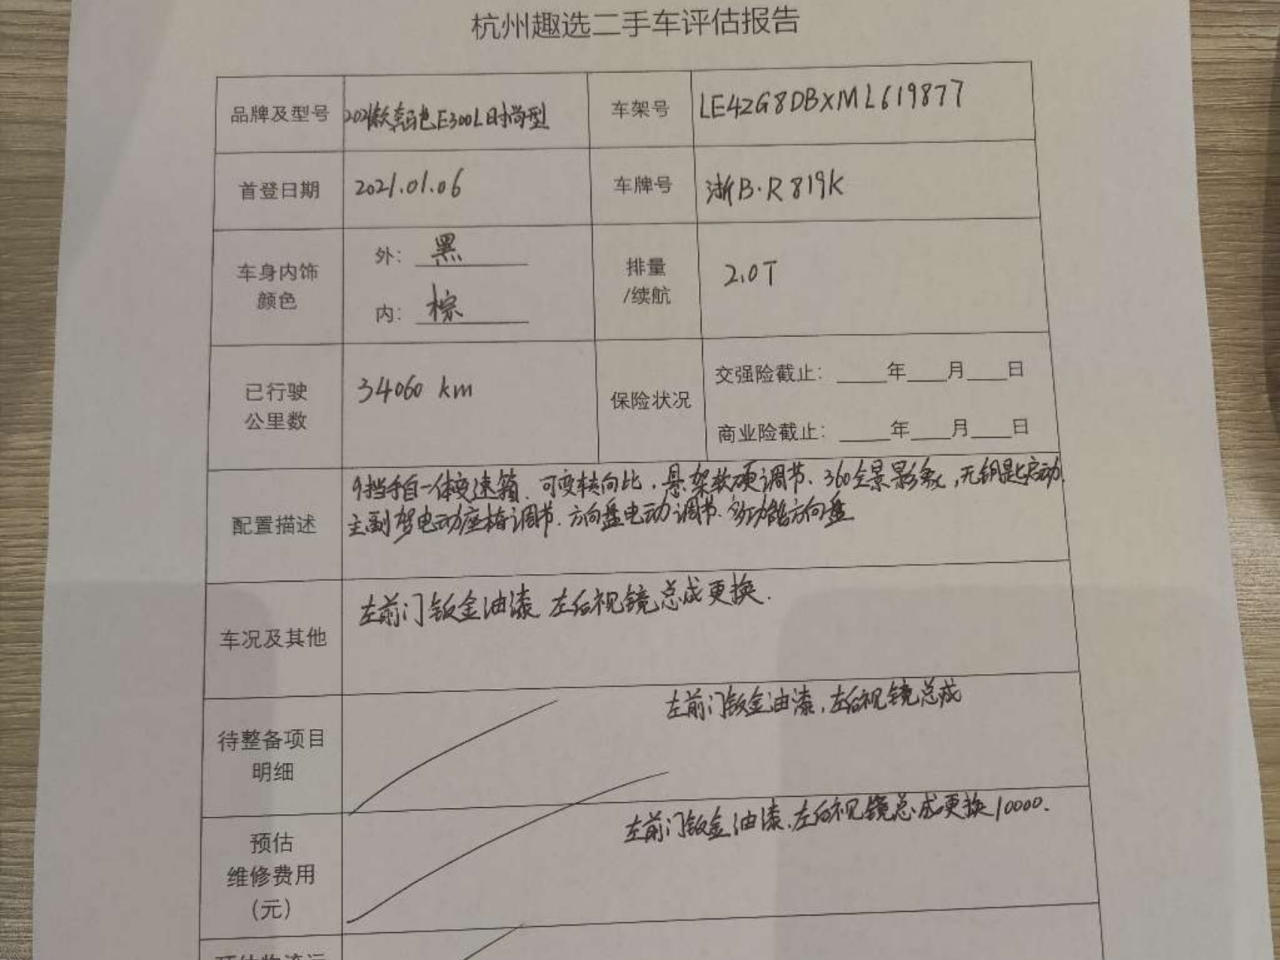 杭州趣选二手车评估报告
品牌及型号 2021款奔驰E300L时尚型 车架号 LE4ZG8DBXML619877
首登日期 2021.01.06 车牌号 浙B·R819K
车身内饰
颜色
外: 黑
内: 棕
排量
/续航
2.0T
已行驶
公里数
34060 km
保险状况
交强险截止: ____年___月___日
商业险截止: ____年___月___日
配置描述
9挡手自一体变速箱、可变转向比、悬架软硬调节、360全景影象、无钥匙启动、
主副驾电动座椅调节、方向盘电动调节、多功能方向盘
车况及其他
左前门钣金油漆 左后视镜总成更换.
待整备项目
明细
左前门钣金油漆、左后视镜总成
预估
维修费用
(元)
左前门钣金油漆、左后视镜总成更换10000.